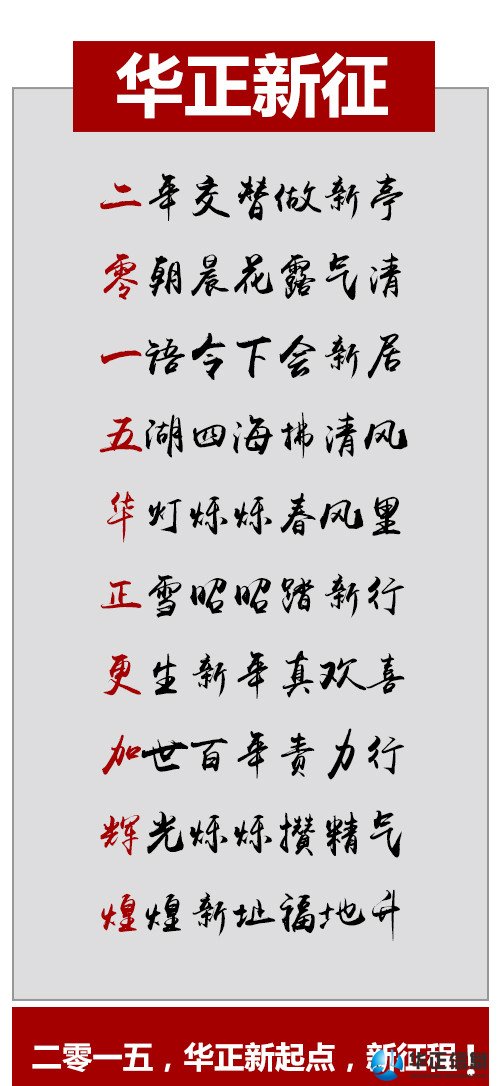 华正新征
二年交替做新亭
零朝晨花露气清
一语令下会新居
五湖四海拂清风
华灯烁烁春风里
正雪昭昭踏新行
更生新年真欢喜
加世百年责力行
辉光烁烁攒精气
煌煌新址福地升
二零一五，华正新起点，新征程！